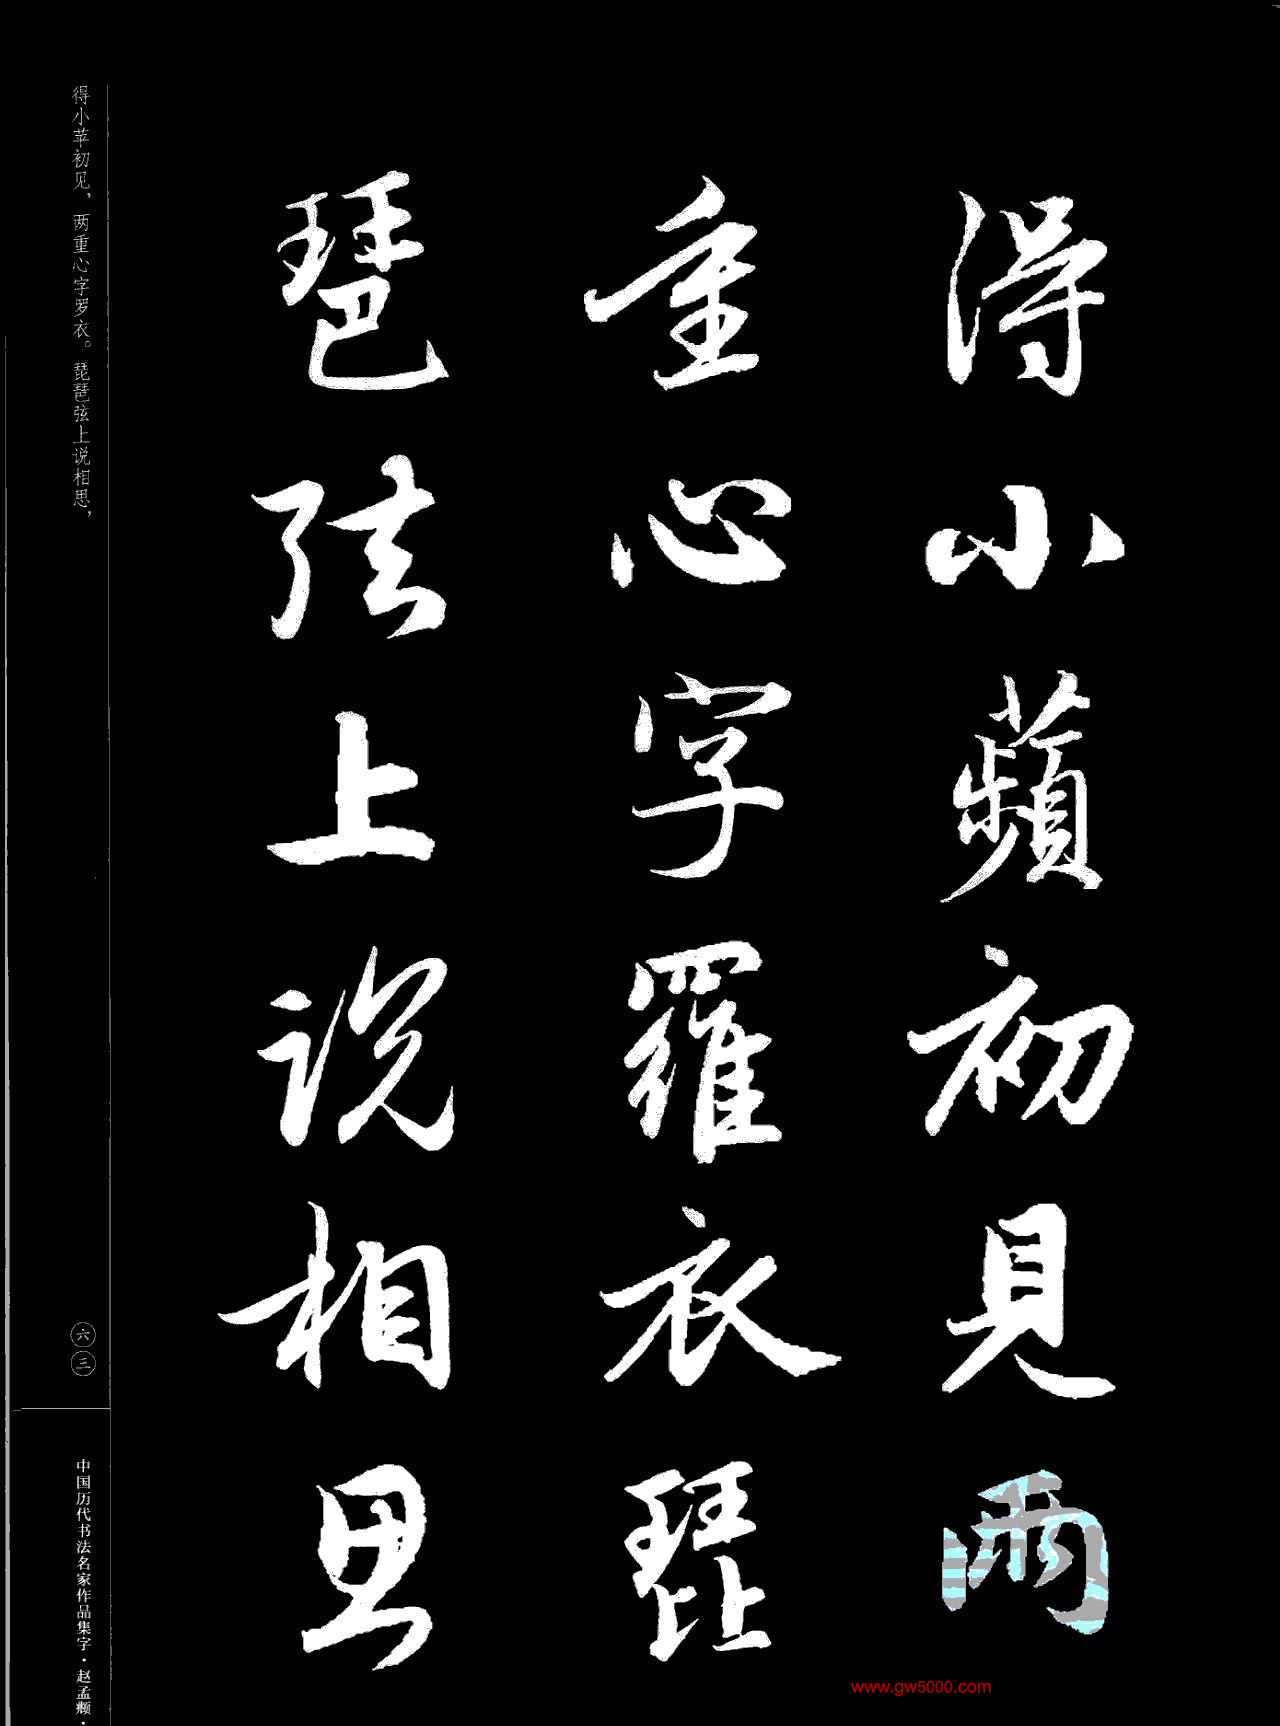 得小蘋初見兩
重心字羅衣琵
琶弦上说相思
得小苹初见，两重心字罗衣。琵琶弦上说相思，
六三
中国历代书法名家作品集字·赵孟頫·
www.gw5000.com